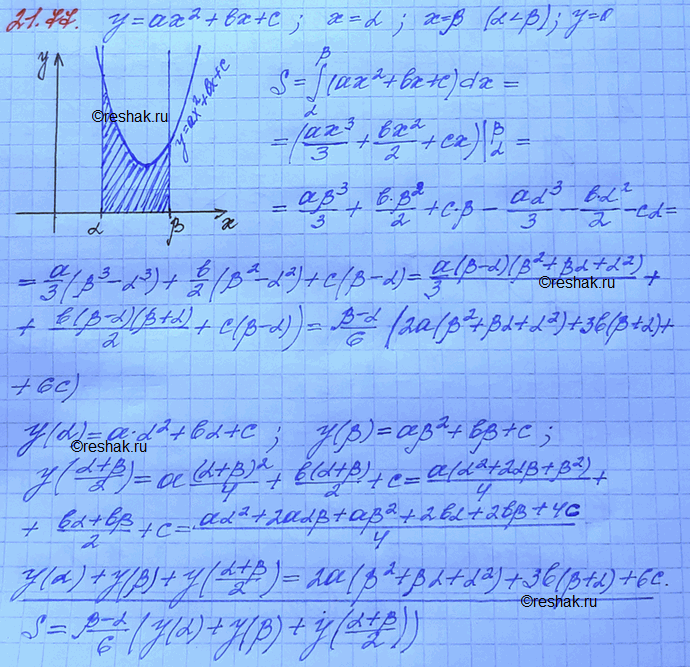 21.77. y=ax²+bx+c ; x=α ; x=β (α<β); y=0
y
y=ax²+bx+c
©reshak.ru
α β x
S=∫_α^β (ax²+bx+c)dx=
=(ax³/3+bx²/2+cx)|_α^β=
=aβ³/3+b·β²/2+c·β-aα³/3-b·α²/2-cα=
=a/3(β³-α³)+b/2(β²-α²)+c(β-α)=a(β-α)(β²+βα+α²)/3+
©reshak.ru
+b(β-α)(β+α)/2+c(β-α))=β-α/6(2a(β²+βα+α²)+3b(β+α)+
+6c)
y(α)=a·α²+bα+c ; y(β)=aβ²+bβ+c ;
©reshak.ru
y(α+β/2)=a(α+β)²/4+b(α+β)/2+c=a(α²+2αβ+β²)/4+
+bα+bβ/2+c=aα²+2aαβ+aβ²+2bα+2bβ+4c/4
y(α)+y(β)+y(α+β/2)=2a(β²+βα+α²)+3b(β+α)+6c.
©reshak.ru
S=β-α/6(y(α)+y(β)+y(α+β/2))